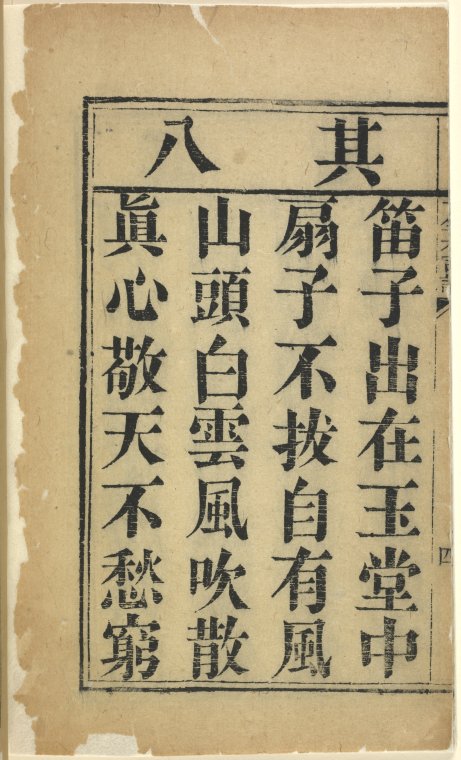 其八
笛子出在玉堂中
扇子不拔自有風
山頭白雲風吹散
眞心敬天不愁窮
四